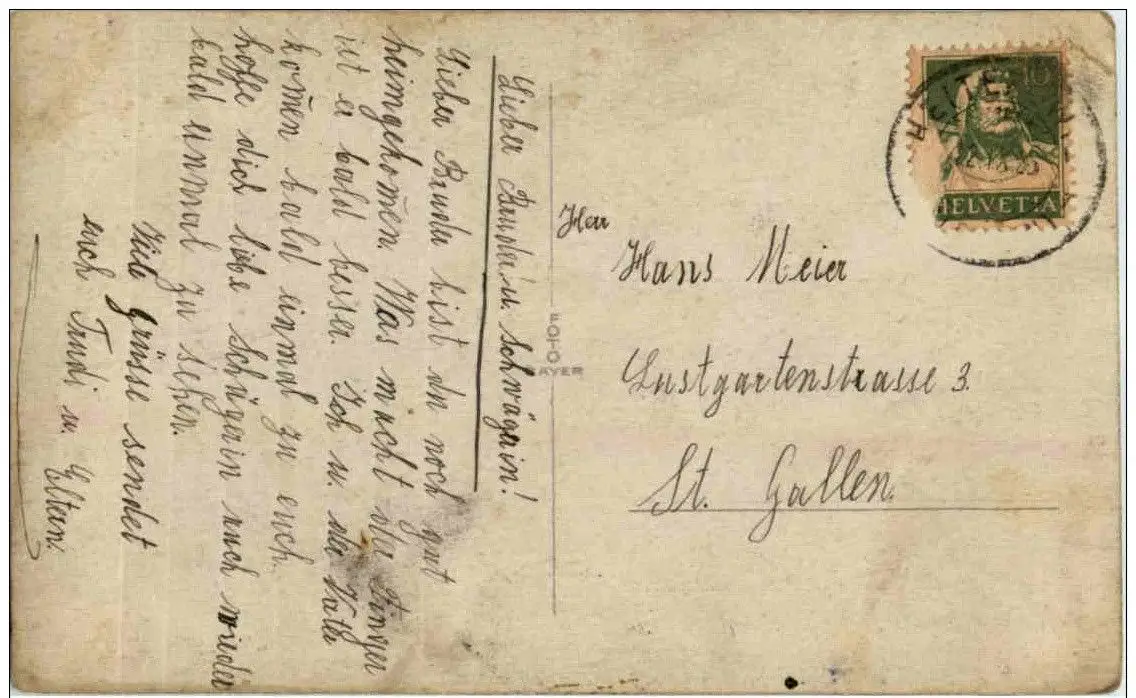 Lieber Bruder u. Schwägerin!
Lieber Bruder bist du noch gut
heimgekom̄en. Was macht der Finger
ist er bald besser. Ich u. der Vater
kom̄en bald einmal zu euch.
hoffe dich liebe Schwägerin auch wieder
bald einmal zu sehen.
Viele Grüsse sendet
euch Trudi u. Eltern.
Herr
Hans Meier
Lustgartenstrasse 3.
St. Gallen.
FOTO
BAYER
10
HELVETIA